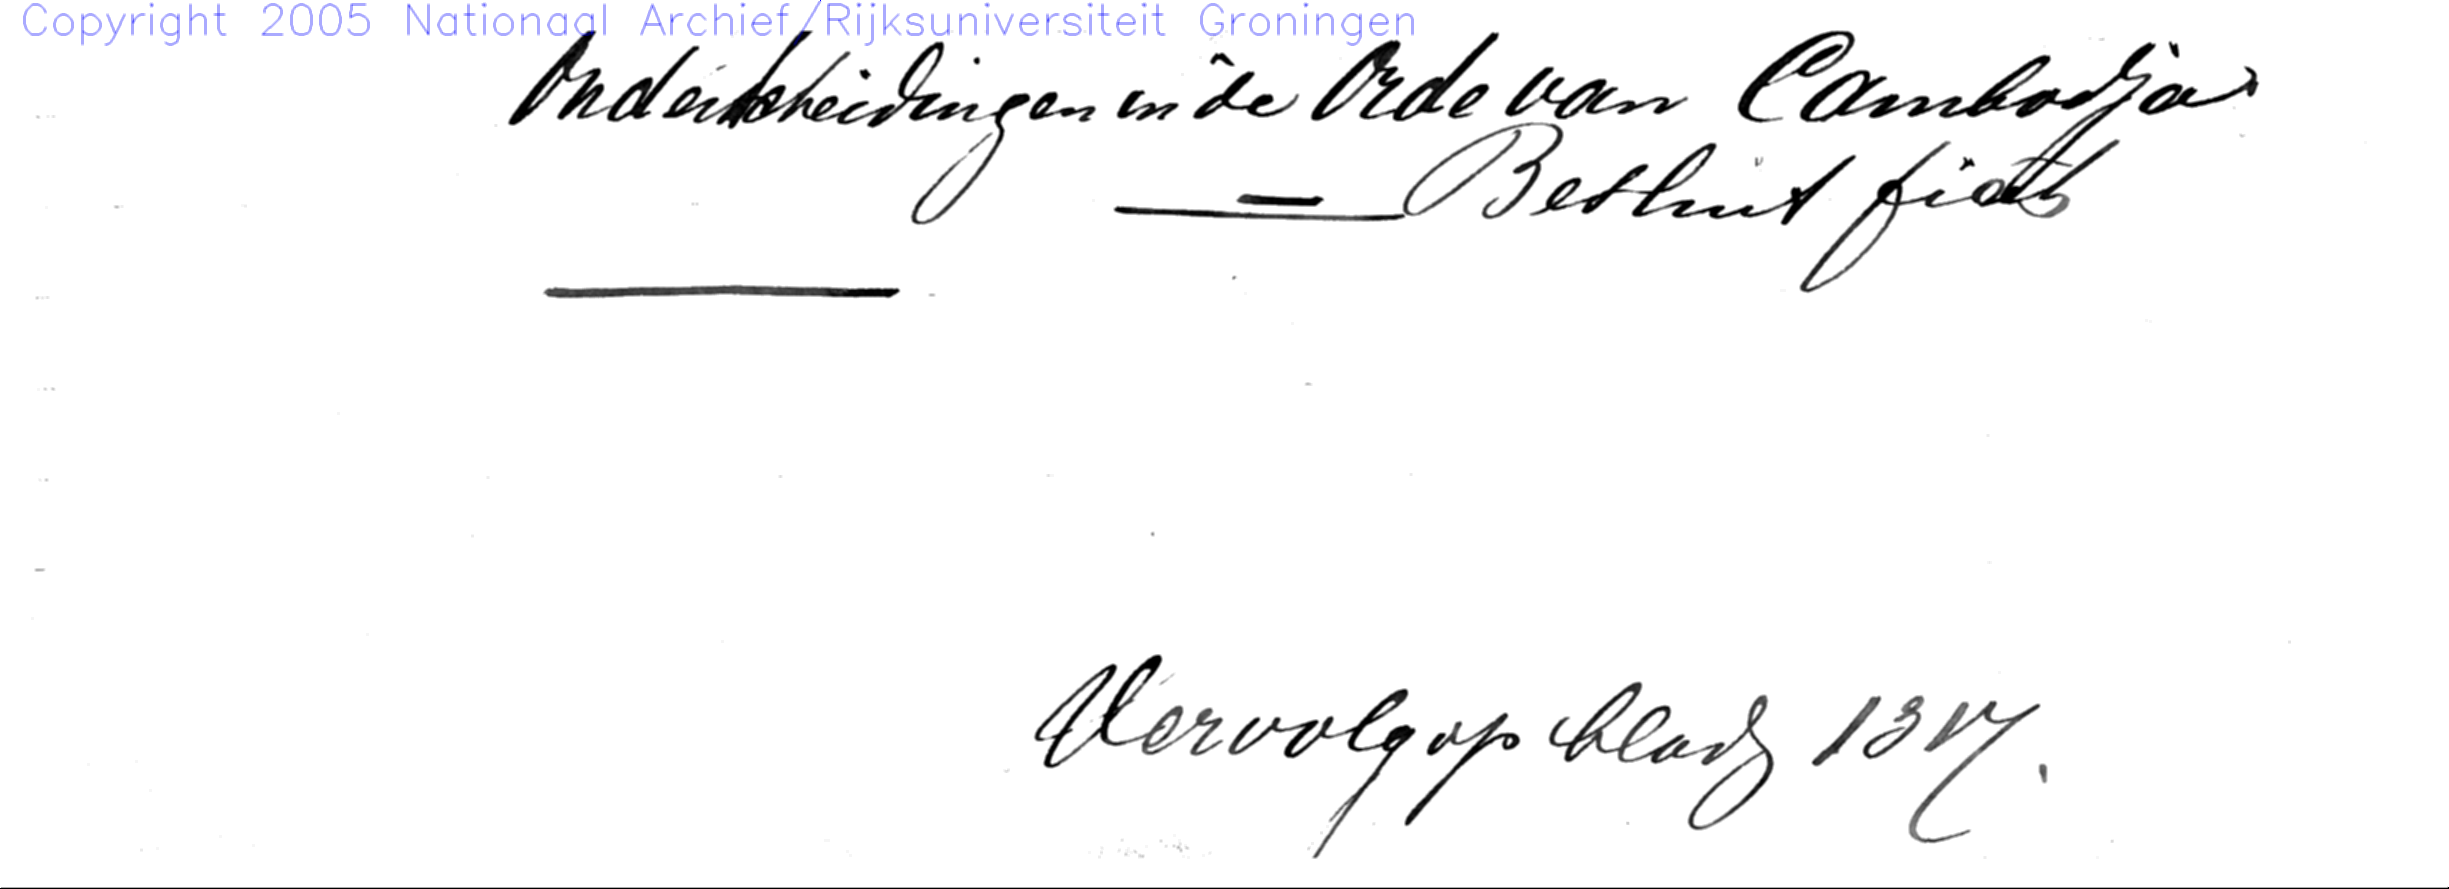 Copyright 2005 Nationaal Archief/Rijksuniversiteit Groningen
Onderscheidingen in de Orde van Cambodja
Besluit fiat
Vervolg op bladz 1317.